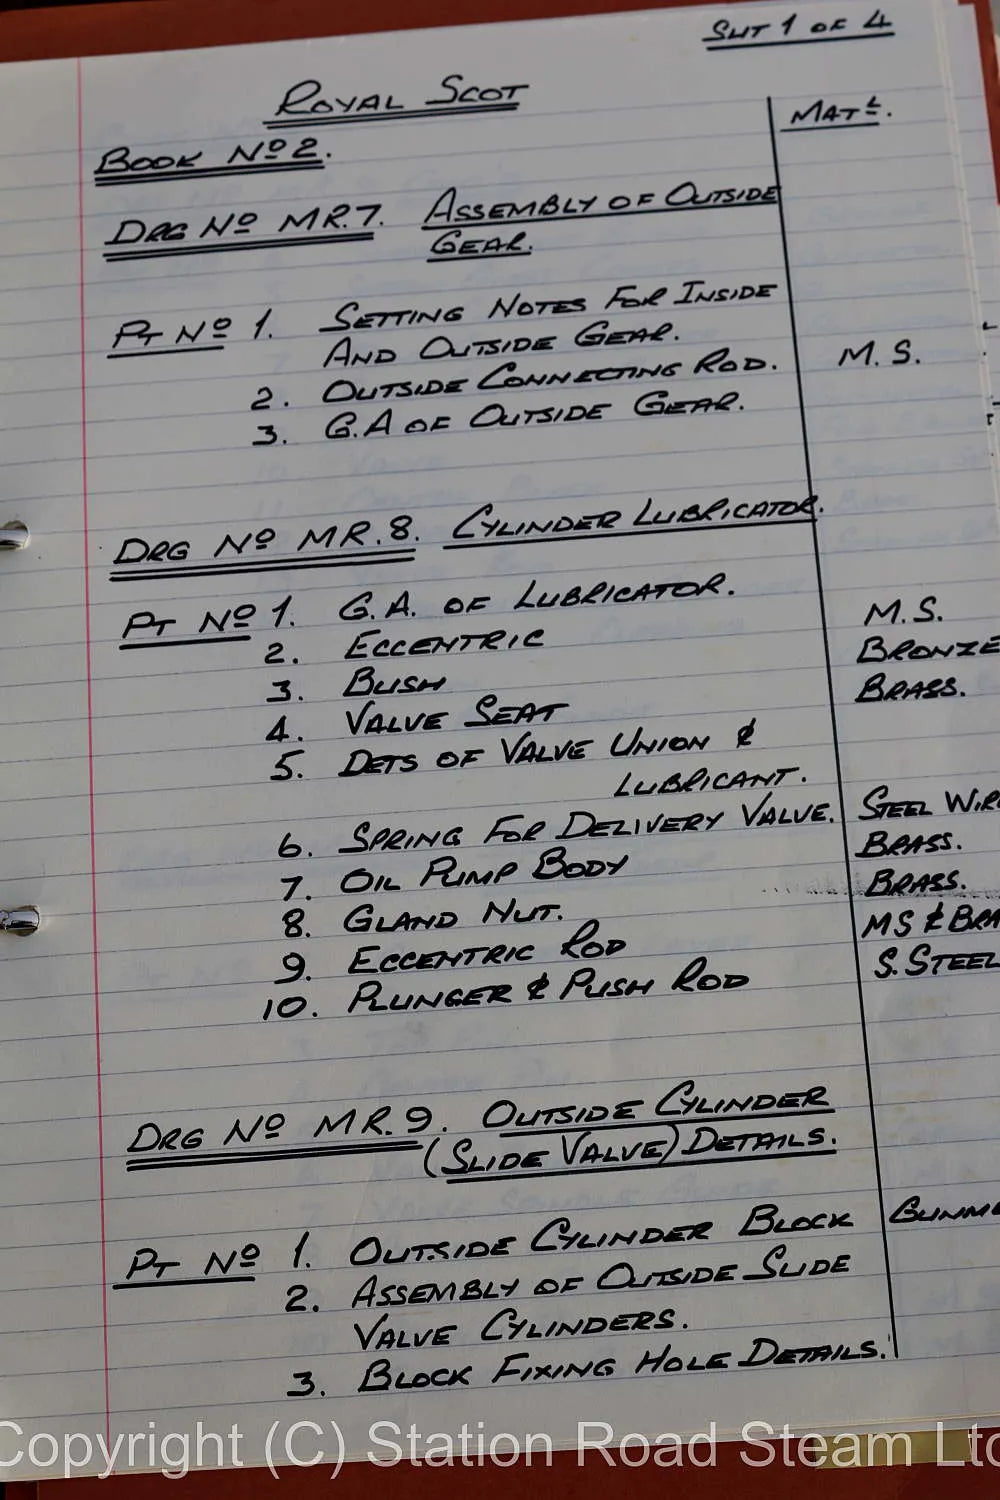 SHT 1 OF 4
ROYAL SCOT
MATL.
BOOK No 2.
DRG No MR.7. ASSEMBLY OF OUTSIDE
GEAR.
PT No 1. SETTING NOTES FOR INSIDE
AND OUTSIDE GEAR.
2. OUTSIDE CONNECTING ROD. M.S.
3. G.A OF OUTSIDE GEAR.
DRG No MR.8. CYLINDER LUBRICATOR.
PT No 1. G.A. OF LUBRICATOR.
2. ECCENTRIC M.S.
3. BUSH BRONZE
4. VALVE SEAT BRASS.
5. DETS OF VALVE UNION &
LUBRICANT.
6. SPRING FOR DELIVERY VALVE. STEEL WIR
7. OIL PUMP BODY BRASS.
8. GLAND NUT. BRASS.
9. ECCENTRIC ROD MS & BRA
10. PLUNGER & PUSH ROD S. STEEL
DRG No MR.9. OUTSIDE CYLINDER
(SLIDE VALVE) DETAILS.
PT No 1. OUTSIDE CYLINDER BLOCK GUNM
2. ASSEMBLY OF OUTSIDE SLIDE
VALVE CYLINDERS.
3. BLOCK FIXING HOLE DETAILS.
Copyright (C) Station Road Steam Ltd